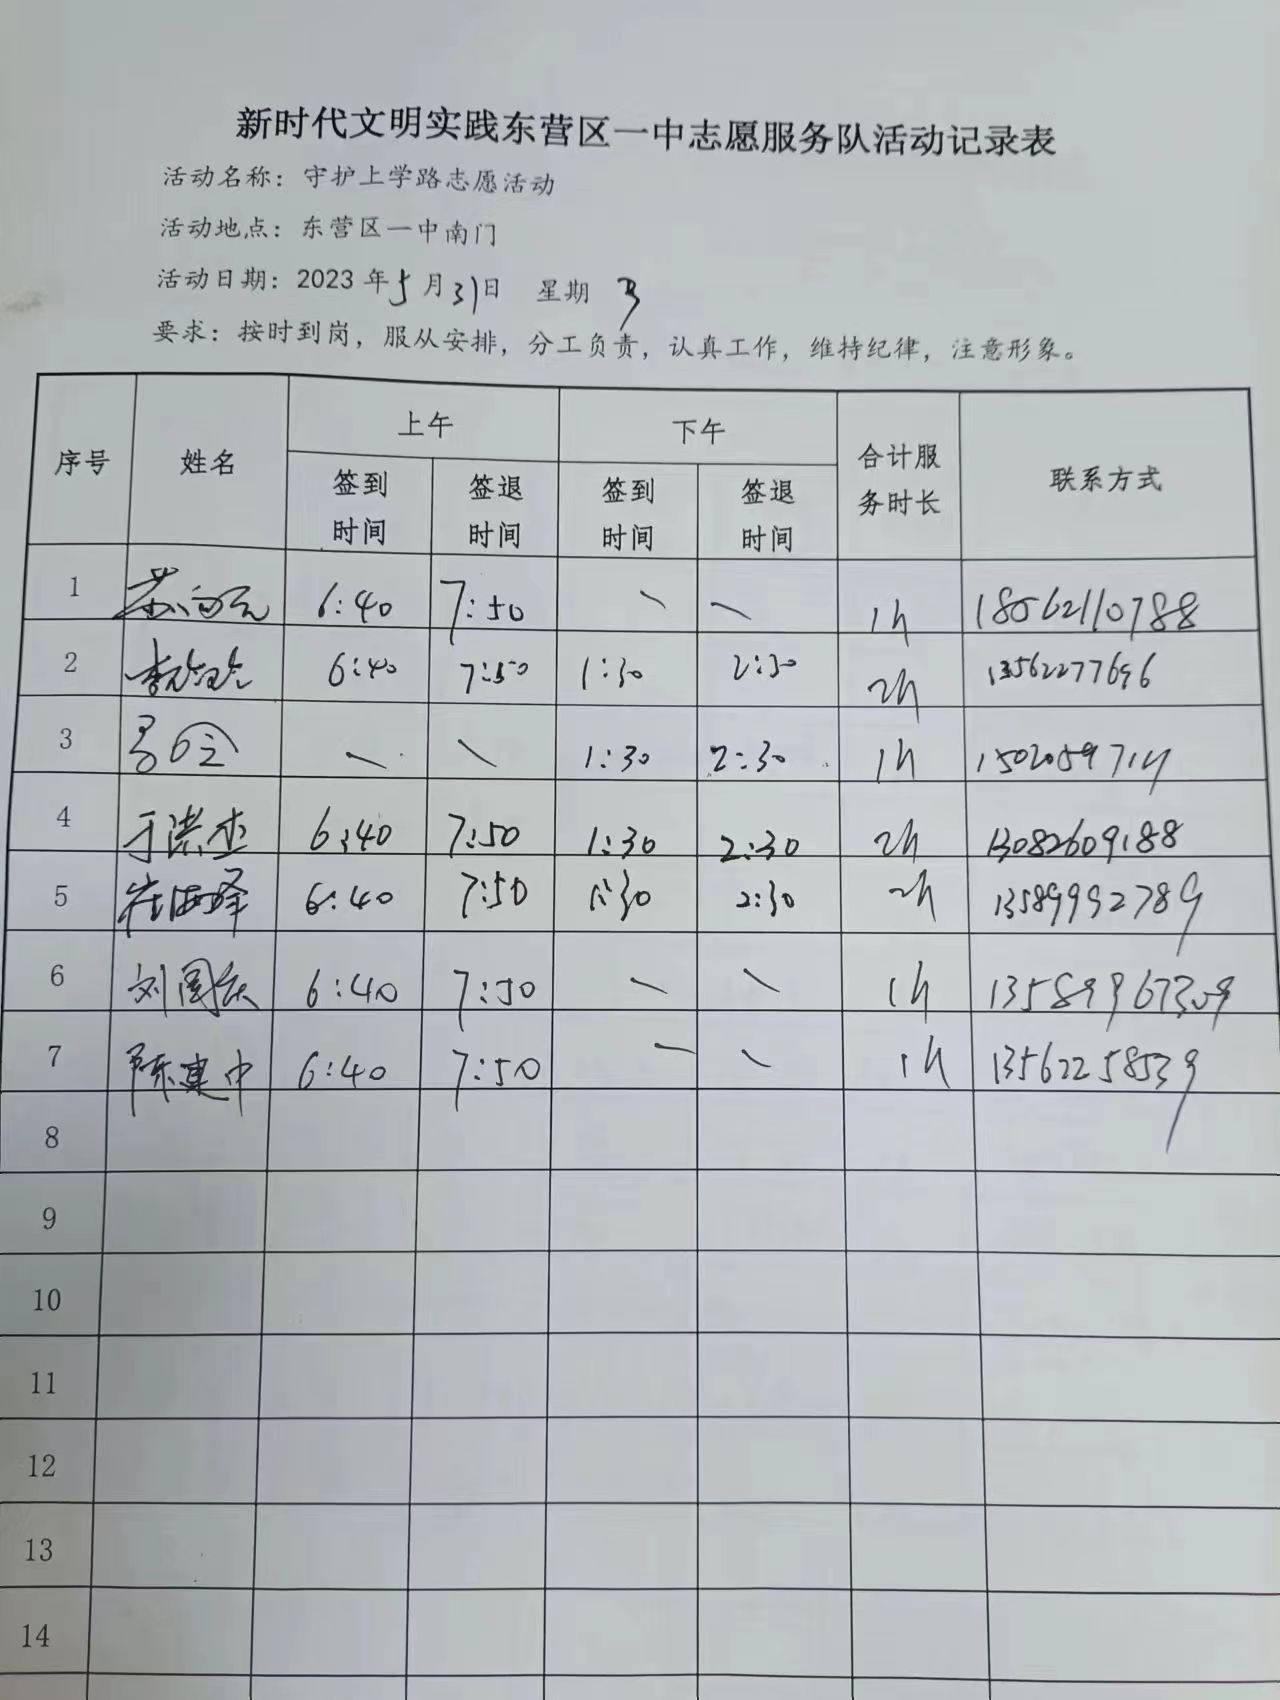 新时代文明实践东营区一中志愿服务队活动记录表
活动名称：守护上学路志愿活动
活动地点：东营区一中南门
活动日期：2023年5月31日 星期3
要求：按时到岗，服从安排，分工负责，认真工作，维持纪律，注意形象。
序号 姓名 上午 下午 合计服务时长 联系方式
签到时间 签退时间 签到时间 签退时间
1 6:40 7:50 1h 18562110788
2 6:40 7:50 1:30 2:30 2h 13562277696
3 1:30 2:30 1h
4 于洪杰 6:40 7:50 1:30 2:30 2h 13082609188
5 崔海泽 6:40 7:50 1:30 2:30 2h 13589992789
6 刘国庆 6:40 7:50 1h 13589967309
7 陈建中 6:40 7:50 1h 13562258539
8
9
10
11
12
13
14